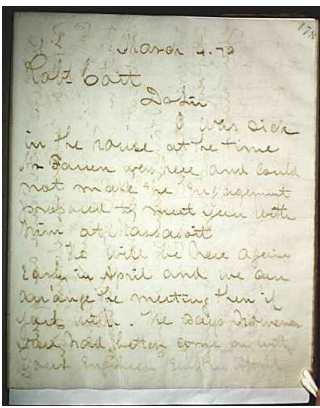 178
March 4. 70
Robt Catt
I was sick
in the house at the time
Mr was here and could
not make the engagement
proposed to meet you with
him at
He will be here again
Early in April and we can
arrange the meeting then if
you wish. He says however
you had better come on with
your Engineer